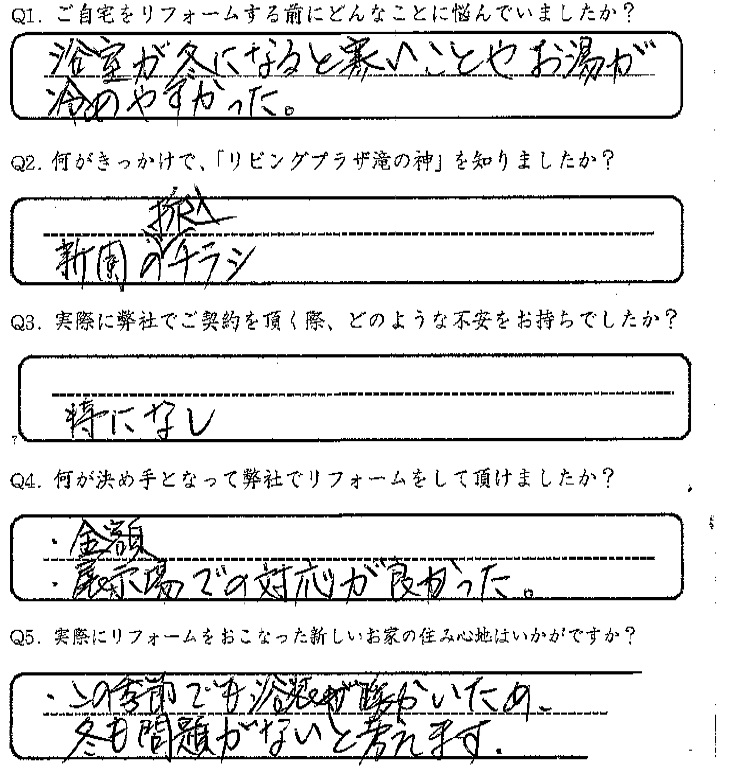 Q1. ご自宅をリフォームする前にどんなことに悩んでいましたか?
浴室が冬になると寒いことやお湯が
冷めやすかった。
Q2. 何がきっかけで、「リビングプラザ滝の神」を知りましたか?
折込
新聞のチラシ
Q3. 実際に弊社でご契約を頂く際、どのような不安をお持ちでしたか?
特になし
Q4. 何が決め手となって弊社でリフォームをして頂けましたか?
・金額
・展示場での対応が良かった。
Q5. 実際にリフォームをおこなった新しいお家の住み心地はいかがですか?
・この季節でも浴室が暖かいため、
冬も問題がないと考えます.